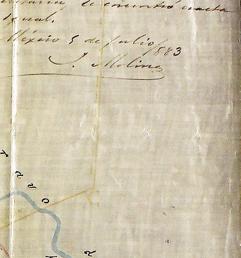 se encontró exacta
igual.
México 5 de Julio 1883
J. Molina